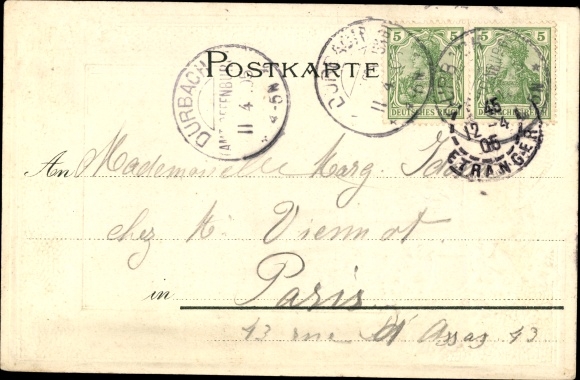 POSTKARTE
DURBACH
(AMT OFFENBURG)
11 4 05
4-5N
DURBACH
11 4
5 5 5 5
DEUTSCHES REICH
REICH
12 -4
05
ETRANGER
An Mademoiselle Marg.
chez M. Viennot
in Paris
13 rue d'Assas 13